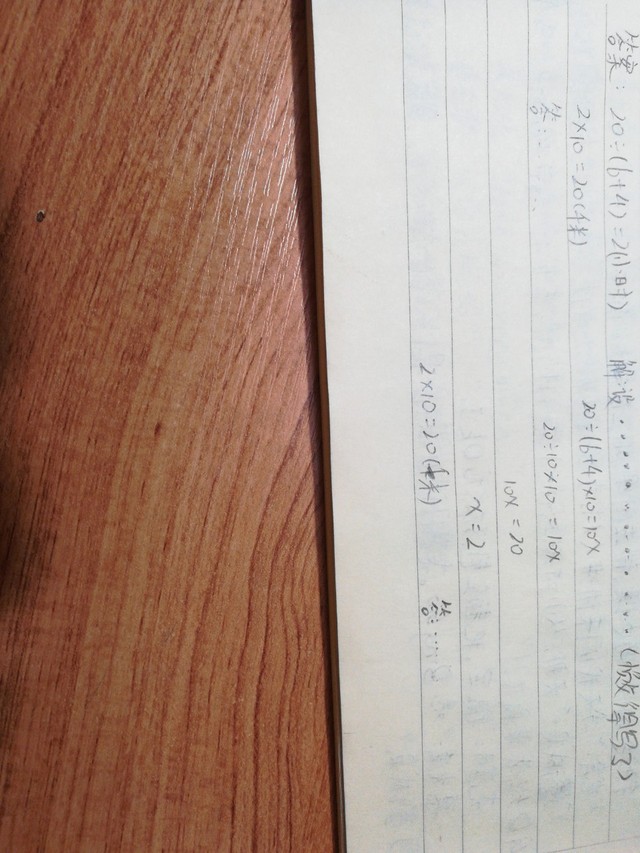 答案：20÷(6+4)=2(小时)
2×10=20(千米)
答：……
解设………(懒得写了)
20÷(6+4)×10=10x
20÷10×10=10x
10x=20
x=2
2×10=20(千米)
答：……